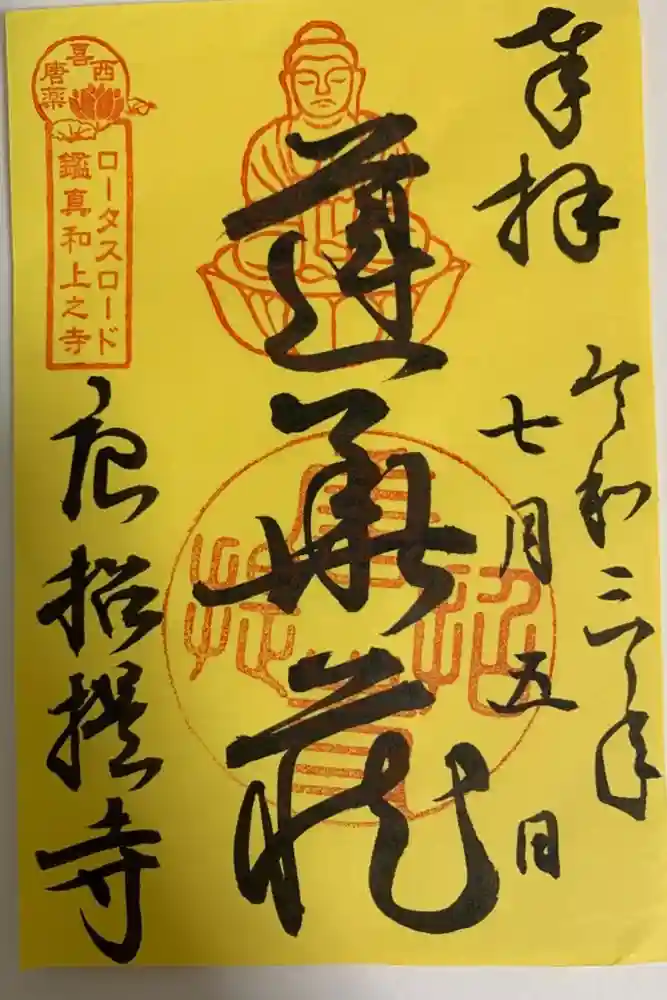 奉拝
令和三年
七月五日
蓮華蔵
唐招提寺
唐招提寺
喜
西
唐
薬
ロータスロード
鑑真和上之寺